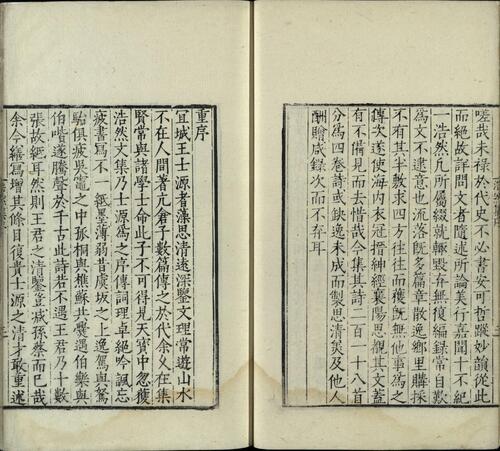 嗟哉未祿於代史不必書安可哲蹤妙韻從此
而絕故詳問文者隨述所論美行嘉聞十不紀
一浩然凡所屬綴就輒毀弃無復編錄常自歎
為文不逮意也流落既多篇章散逸鄉里購採
不有其半敷求四方往往而獲既無他事為之
傳次遂使海内衣冠搢紳經襄陽思覩其文蓋
有不備見而去惜哉今集其詩二百一十八首
分為四卷詩或缺逸未成而製思清美及他人
酬贈咸錄次而不弃耳
重序
宜城王士源者藻思清遠深鑒文理常遊山水
不在人間著亢倉子數篇傳之於代余久在集
賢常與諸學士命此子不可得見天寶中忽獲
浩然文集乃士源為之序傳詞理卓絕吟諷忘
疲書寫不一紙墨薄弱昔虞坂之上逸駕與駑
駘俱疲吳竈之中孤桐與樵蘇共爨遇伯樂與
伯喈遂騰聲於千古此詩若不遇王君乃十數
張故紙耳然則王君之清鑒豈減孫蔡而已哉
余今繕寫增其條目復貴士源之清才敢重述